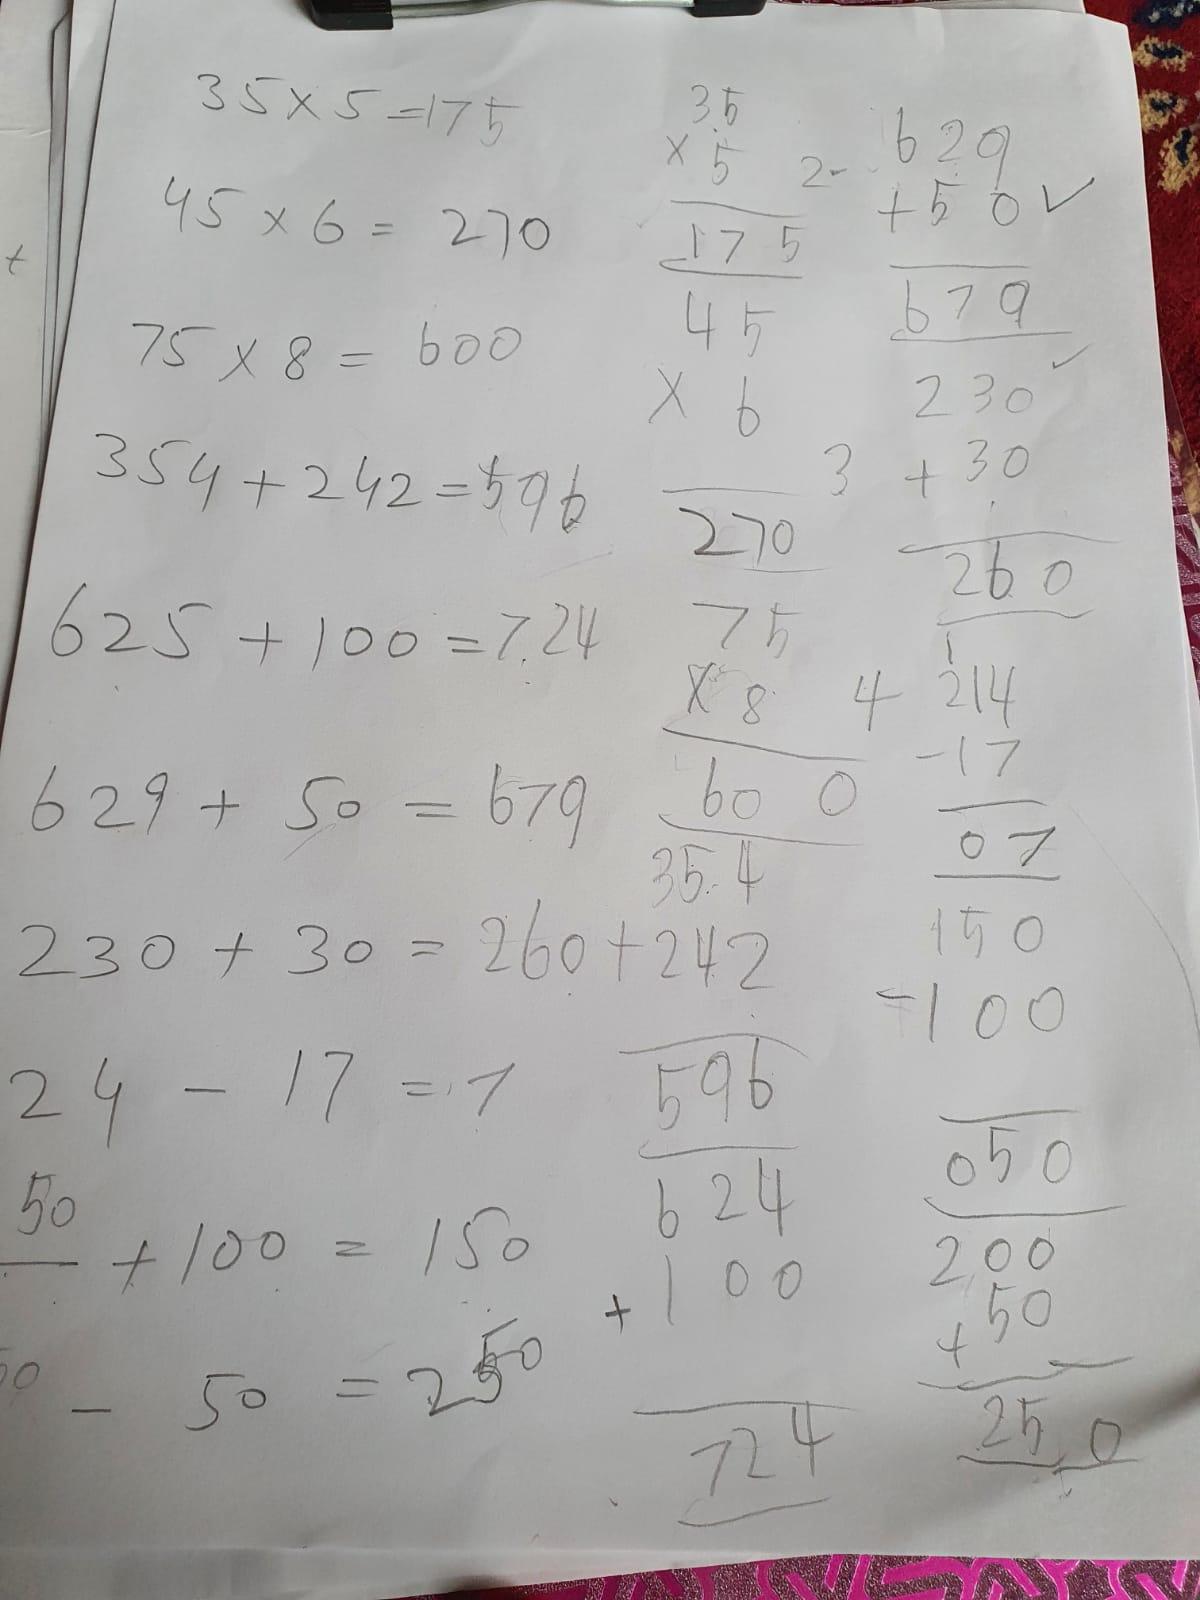 35 x 5 = 175
45 x 6 = 270
75 x 8 = 600
354 + 242 = 596
625 + 100 = 724
629 + 50 = 679
230 + 30 = 260
24 - 17 = 7
50
+ 100 = 150
50
- 50 = 250
35
x 5
175
45
x 6
270
75
x 8
600
354
+ 242
596
624
+ 100
724
2- 629
+ 50 ✓
679
230 ✓
3 + 30
260
1
4 214
- 17
07
150
- 100
050
200
+ 50
250
+